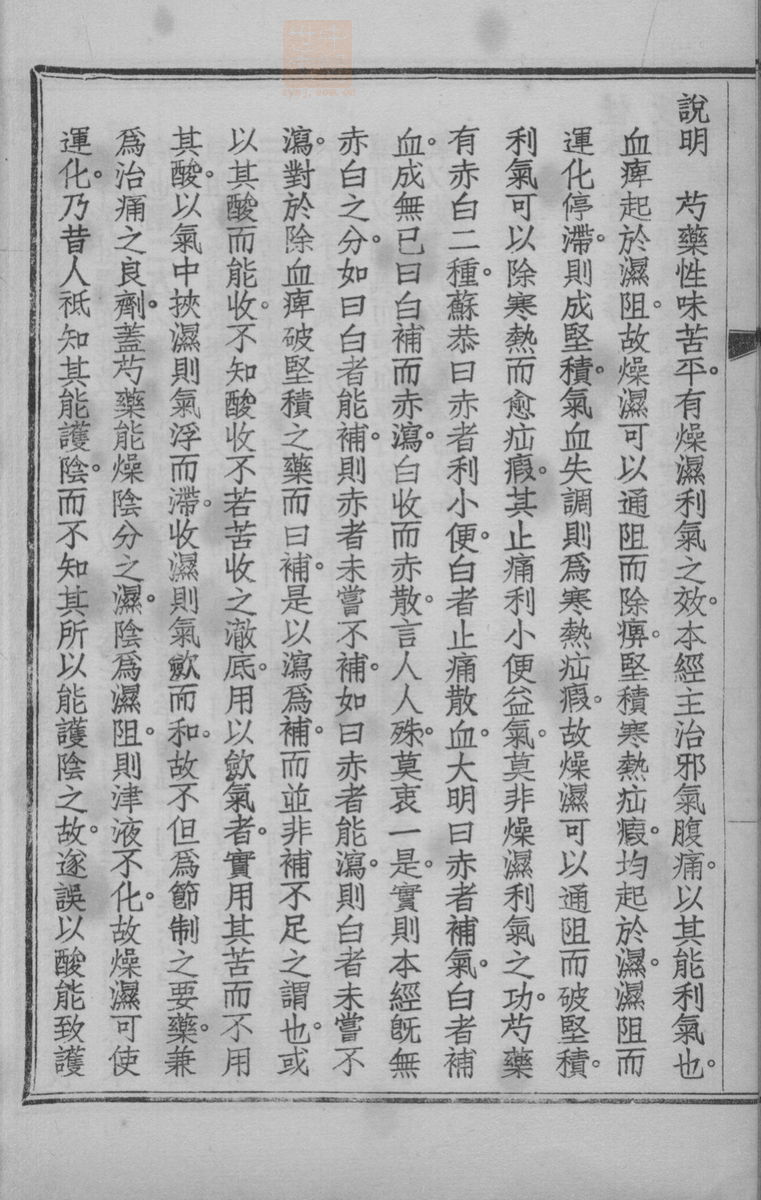 說明　芍藥性味苦平。有燥濕利氣之效。本經主治邪氣腹痛。以其能利氣也。
血痺起於濕阻。故燥濕可以通阻而除痹。堅積寒熱疝瘕。均起於濕。濕阻而
運化停滯。則成堅積。氣血失調則爲寒熱疝瘕。故燥濕可以通阻而破堅積。
利氣可以除寒熱而愈疝瘕。其止痛利小便益氣。莫非燥濕利氣之功。芍藥
有赤白二種。蘇恭曰赤者利小便。白者止痛散血。大明曰赤者補氣。白者補
血。成無已曰白補而赤瀉。白收而赤散。言人人殊。莫衷一是。實則本經旣無
赤白之分。如曰白者能補。則赤者未嘗不補。如曰赤者能瀉。則白者未嘗不
瀉。對於除血痺破堅積之藥而曰補。是以瀉爲補。而並非補不足之謂也。或
以其酸而能收。不知酸收不若苦收之澈底。用以歛氣者。實用其苦而不用
其酸。以氣中挾濕則氣浮而滯。收濕則氣歛而和。故不但爲節制之要藥。兼
爲治痛之良劑。蓋芍藥能燥陰分之濕。陰爲濕阻。則津液不化。故燥濕可使
運化。乃昔人祗知其能護陰。而不知其所以能護陰之故。遂誤以酸能致護